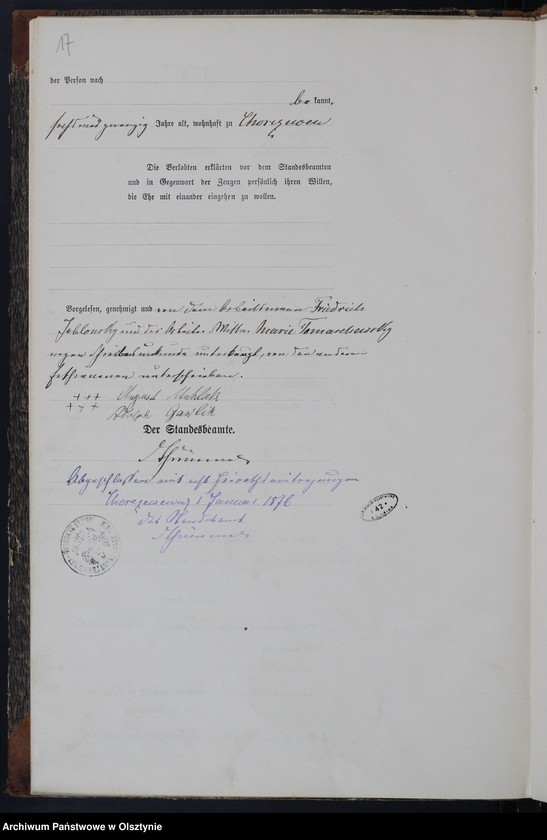 17
der Person nach
be kannt,
sechs und zwanzig Jahre alt, wohnhaft zu
Die Verlobten erklärten vor dem Standesbeamten
und in Gegenwart der Zeugen persönlich ihren Willen,
die Ehe mit einander eingehen zu wollen.
Vorgelesen, genehmigt und von dem Arbeitsmann Friedrich
Jablonsky und der Arbeiter Wittwe Marie
wegen Schreibensunkunde unterkreuzt, von den anderen
Erschienenen unterschrieben.
+++ August
+++ Adolph Gawlik
Der Standesbeamte.
Abgeschlossen mit acht Heirathseintragungen
1 Januar 1876
Der Standesbeamte
42
Archiwum Państwowe w Olsztynie